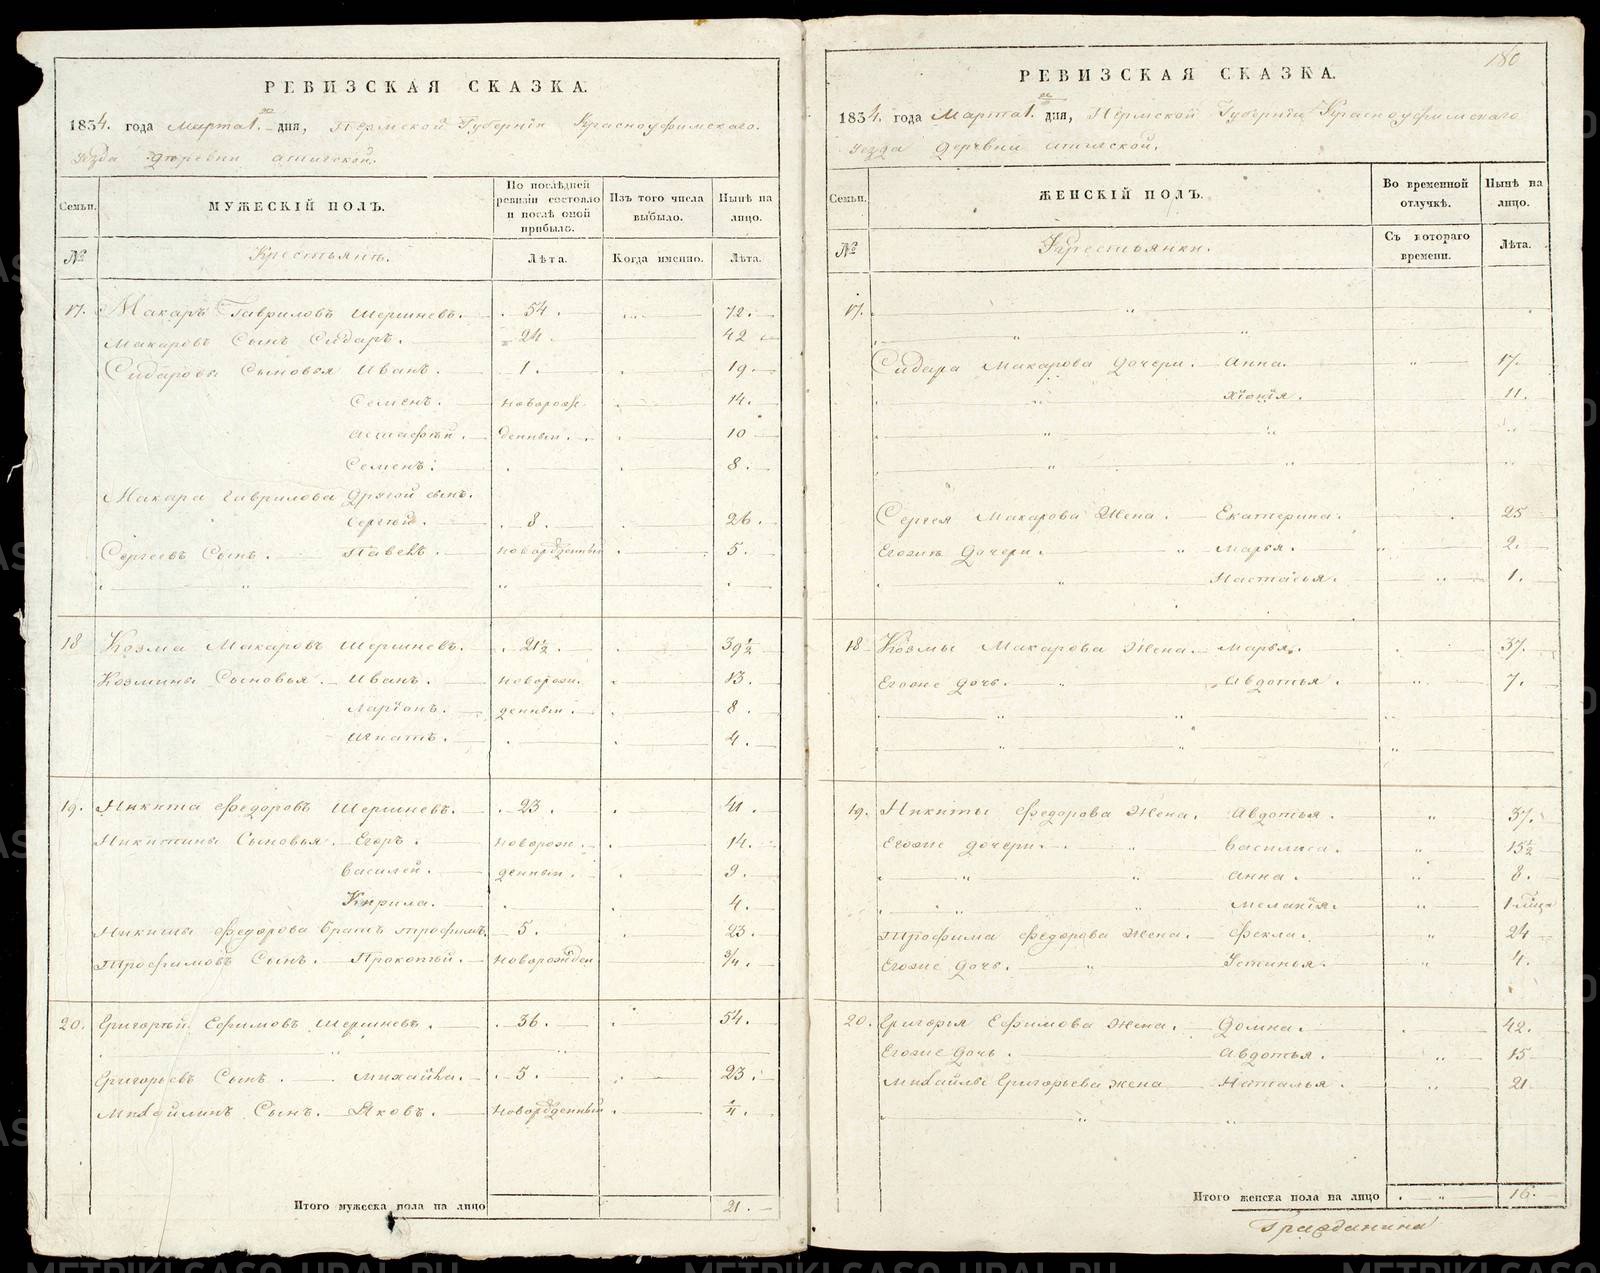 РЕВИЗСКАЯ СКАЗКА.
1834. года Марта 1. го дня, Пермской Губернiи Красноуфимскаго.
уезда Деревни Атигской.
Семьи. МУЖЕСКIЙ ПОЛЪ. По послѣдней ревизiи состояло и послѣ оной прибыло. Изъ того числа выбыло. Нынѣ на лицо.
№ Крестьянъ. Лѣта. Когда именно. Лѣта.
17. Макаръ Гавриловъ Шершневъ. 54. 72.
Макаровъ Сынъ Сидаръ. 24. 42
Сидаровы Сыновья Иванъ. 1. 19.
Семенъ. новорож 14.
денныи. 10
Семенъ. 8.
Макара Гаврилова Другой сынъ.
Сергѣй. 8. 26.
Сергеевъ Сынъ. Павелъ. новорожденный 5.
18 Козма Макаровъ Шершневъ. 21½. 39½
Козмины Сыновья. Иванъ. новорож. 13.
Ларiонъ. денныи. 8.
Игнатъ. 4.
19. Никита Федоровъ Шершневъ. 23. 41.
Никитины Сыновья. Егоръ. новорож. 14.
Василей. денныи. 9.
Кирила. 4.
Никиты Федорова Братъ Трофимъ. 5. 23.
Трофимовъ Сынъ. Прокопѣй. новорожден ¾.
20. Григорѣй Ефимовъ Шершневъ. 36. 54.
Григорьевъ Сынъ. Михайла. 5. 23.
Михайлинъ Сынъ. Яковъ. новорожденный
Итого мужеска пола на лицо 21.
180
РЕВИЗСКАЯ СКАЗКА.
1834. года Марта 1. го дня, Пермской Губернiи Красноуфимскаго
уезда Деревни Атигской.
Семьи. ЖЕНСКIЙ ПОЛЪ. Во временной отлучкѣ. Нынѣ на лицо.
№ Крестьянки. Съ котораго времени. Лѣта.
17.
Сидара Макарова Дочери. Анна. 17.
Хiонiя. 11.
Сергея Макарова Жена. Екатерина. 25
Егожъ Дочери. Марья. 2.
Настасья. 1.
18 Козмы Макарова Жена. Марья. 37.
Егоже Дочь. Авдотья. 7.
19. Никиты Федорова Жена. Авдотья. 37.
Егоже дочери. Василиса. 15½
Анна. 8.
Меланiя. 1
Трофима Федорова Жена. Фекла. 24
Егоже Дочь. Устинья. 4.
20. Григорья Ефимова Жена. Домна. 42.
Егоже Дочь. Авдотья. 15
Михайлы Григорьева жена Наталья. 21
Итого женска пола на лицо 16.
Гражданина
METRIKI.GASO-URAL.RU